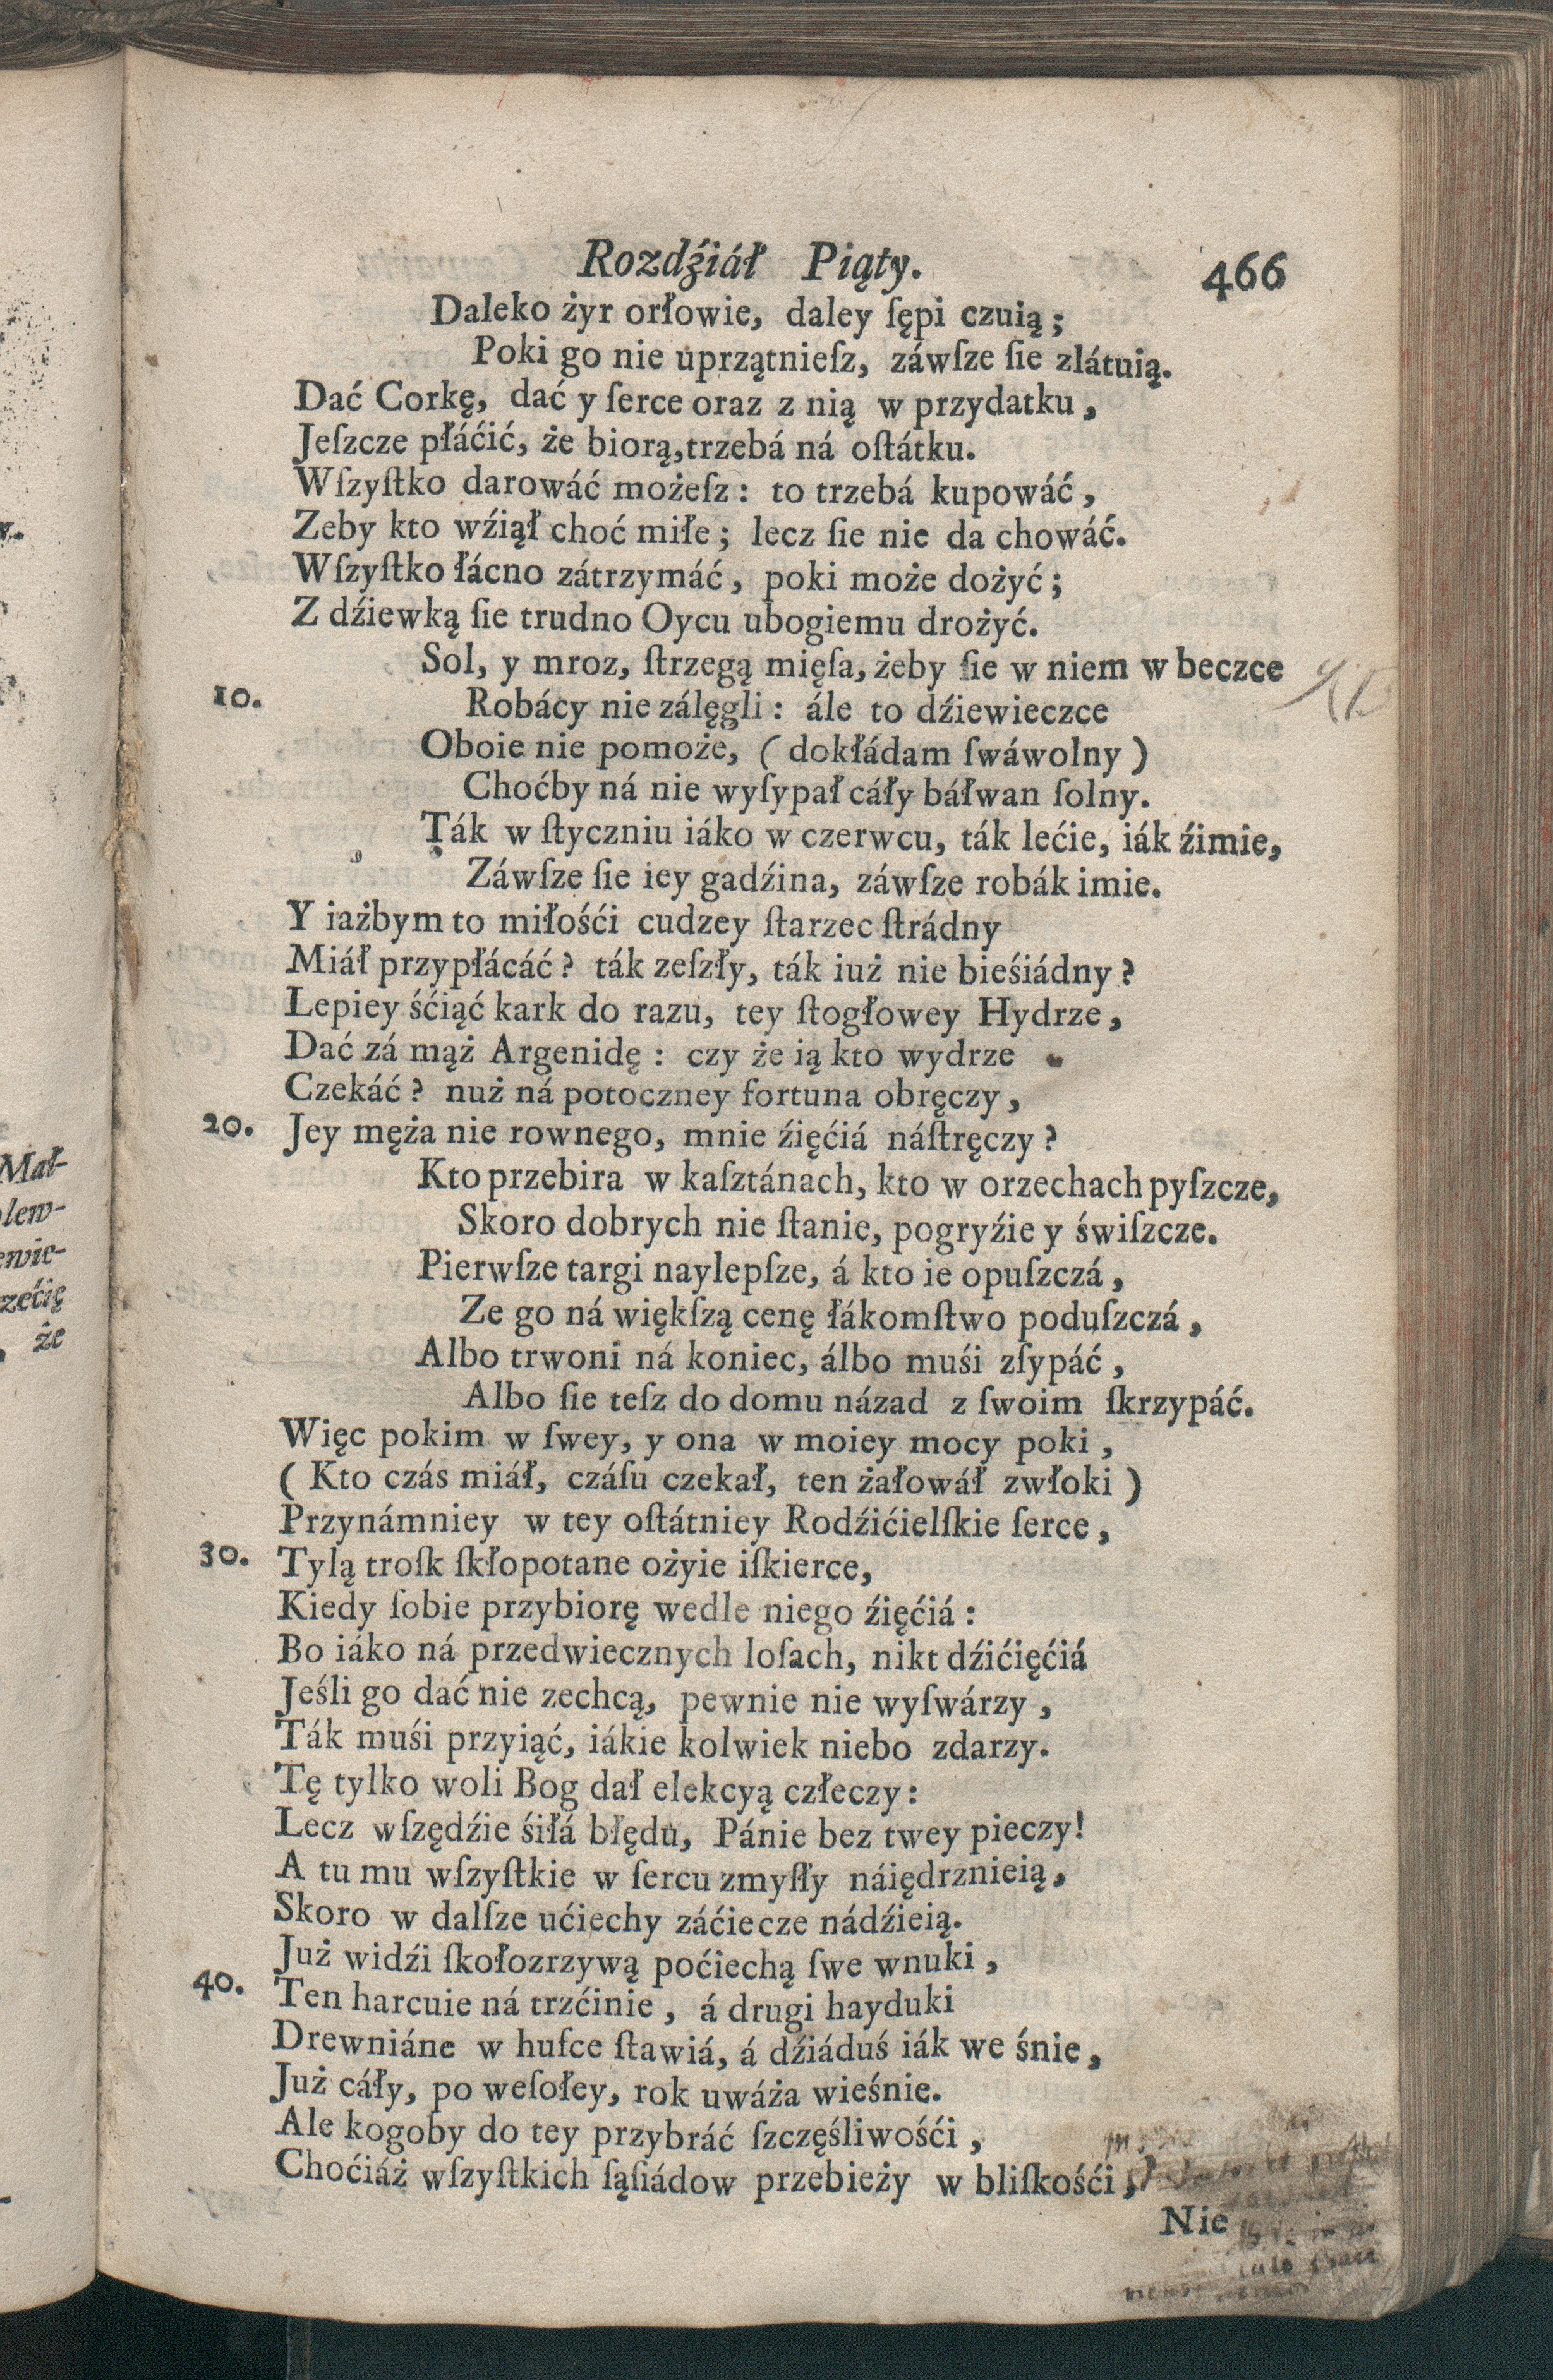 Rozdźiáł Piąty. 466
Daleko żyr orłowie, daley ſępi czuią;
Poki go nie uprzątnieſz, záwſze ſie zlátuią.
Dać Corkę, dać y ſerce oraz z nią w przydatku,
Jeſzcze płáćić, że biorą, trzebá ná oſtátku.
Wſzyſtko darowáć możeſz: to trzebá kupowáć,
Zeby kto wźiął choć miłe; lecz ſie nie da chowáć.
Wſzyſtko łácno zátrzymáć, poki może dożyć;
Z dźiewką ſie trudno Oycu ubogiemu drożyć.
Sol, y mroz, ſtrzegą mięſa, żeby ſie w niem w beczce
10. Robácy nie zálęgli: ále to dźiewieczce
Oboie nie pomoże, (dokłádam ſwáwolny)
Choćby ná nie wyſypał cáły báłwan ſolny.
Ták w ſtyczniu iáko w czerwcu, ták lećie, iák źimie,
Záwſze ſie iey gadźina, záwſze robák imie.
Y iażbym to miłośći cudzey ſtarzec ſtrádny
Miáł przypłácáć? ták zeſzły, ták iuż nie bieśiádny?
Lepiey śćiąć kark do razu, tey ſtogłowey Hydrze,
Dać zá mąż Argenidę: czy że ią kto wydrze
Czekáć? nuż ná potoczney fortuna obręczy,
20. Jey męża nie rownego, mnie źięćiá náſtręczy?
Kto przebira w kaſztánach, kto w orzechach pyſzcze,
Skoro dobrych nie ſtanie, pogryźie y świſzcze.
Pierwſze targi naylepſze, á kto ie opuſzczá,
Ze go ná więkſzą cenę łákomſtwo poduſzczá,
Albo trwoni ná koniec, álbo muśi zſypáć,
Albo ſie teſz do domu názad z ſwoim ſkrzypáć.
Więc pokim w ſwey, y ona w moiey mocy poki,
(Kto czás miáł, czáſu czekał, ten żałowáł zwłoki)
Przynámniey w tey oſtátniey Rodźićielſkie ſerce,
30. Tylą troſk ſkłopotane ożyie iſkierce,
Kiedy ſobie przybiorę wedle niego źięćiá:
Bo iáko ná przedwiecznych loſach, nikt dźićięćiá
Jeśli go dać nie zechcą, pewnie nie wyſwárzy,
Ták muśi przyiąć, iákie kolwiek niebo zdarzy.
Tę tylko woli Bog dał elekcyą człeczy:
Lecz wſzędźie śiłá błędu, Pánie bez twey pieczy!
A tu mu wſzyſtkie w ſercu zmyſły náiędrznieią,
Skoro w dalſze ućiechy záćiecze nádźieią.
Już widźi ſkołozrzywą poćiechą ſwe wnuki,
40. Ten harcuie ná trzćinie, á drugi hayduki
Drewniáne w hufce ſtawiá, á dźiáduś iák we śnie,
Już cáły, po weſołey, rok uwáża wieśnie.
Ale kogoby do tey przybráć ſzczęśliwośći,
Choćiáż wſzyſtkich ſąſiádow przebieży w bliſkośći,
Nie
Mał-
lew-
ewie-
zećię
, że